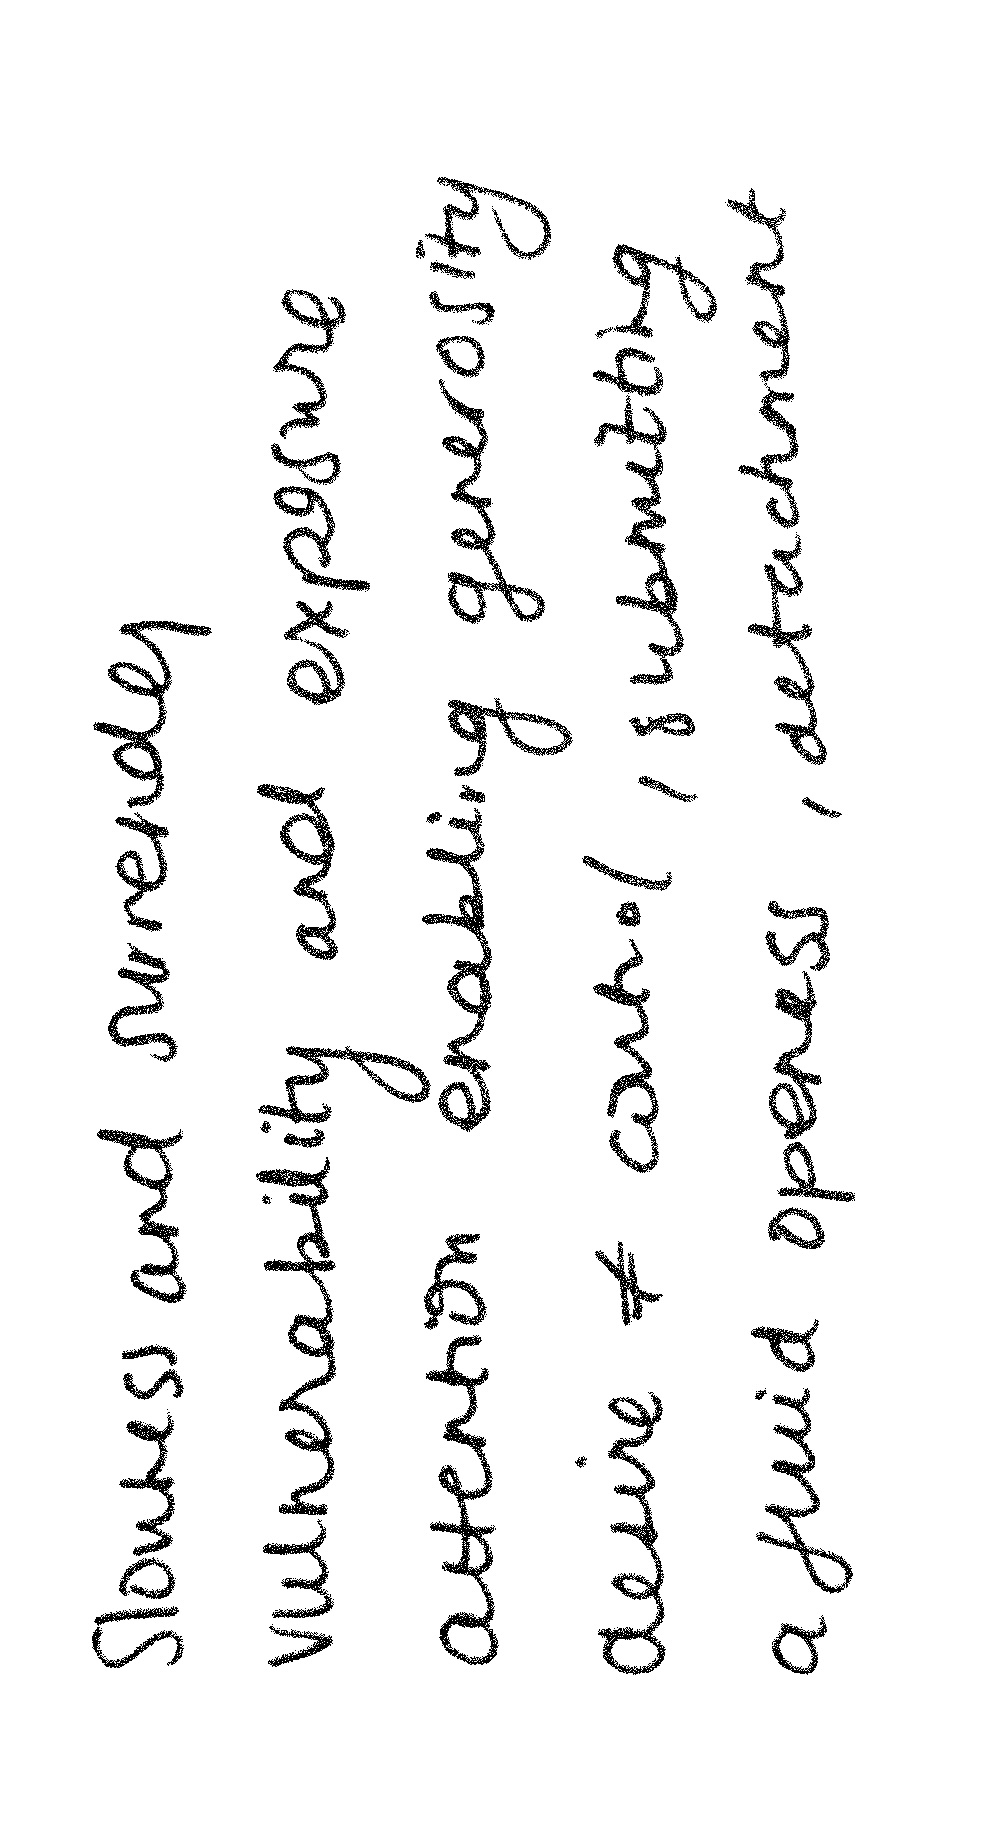 Slowness and surrender
vulnerability and exposure
attention enabling generosity
desire ≠ control, submitting
a fluid openess, detachment